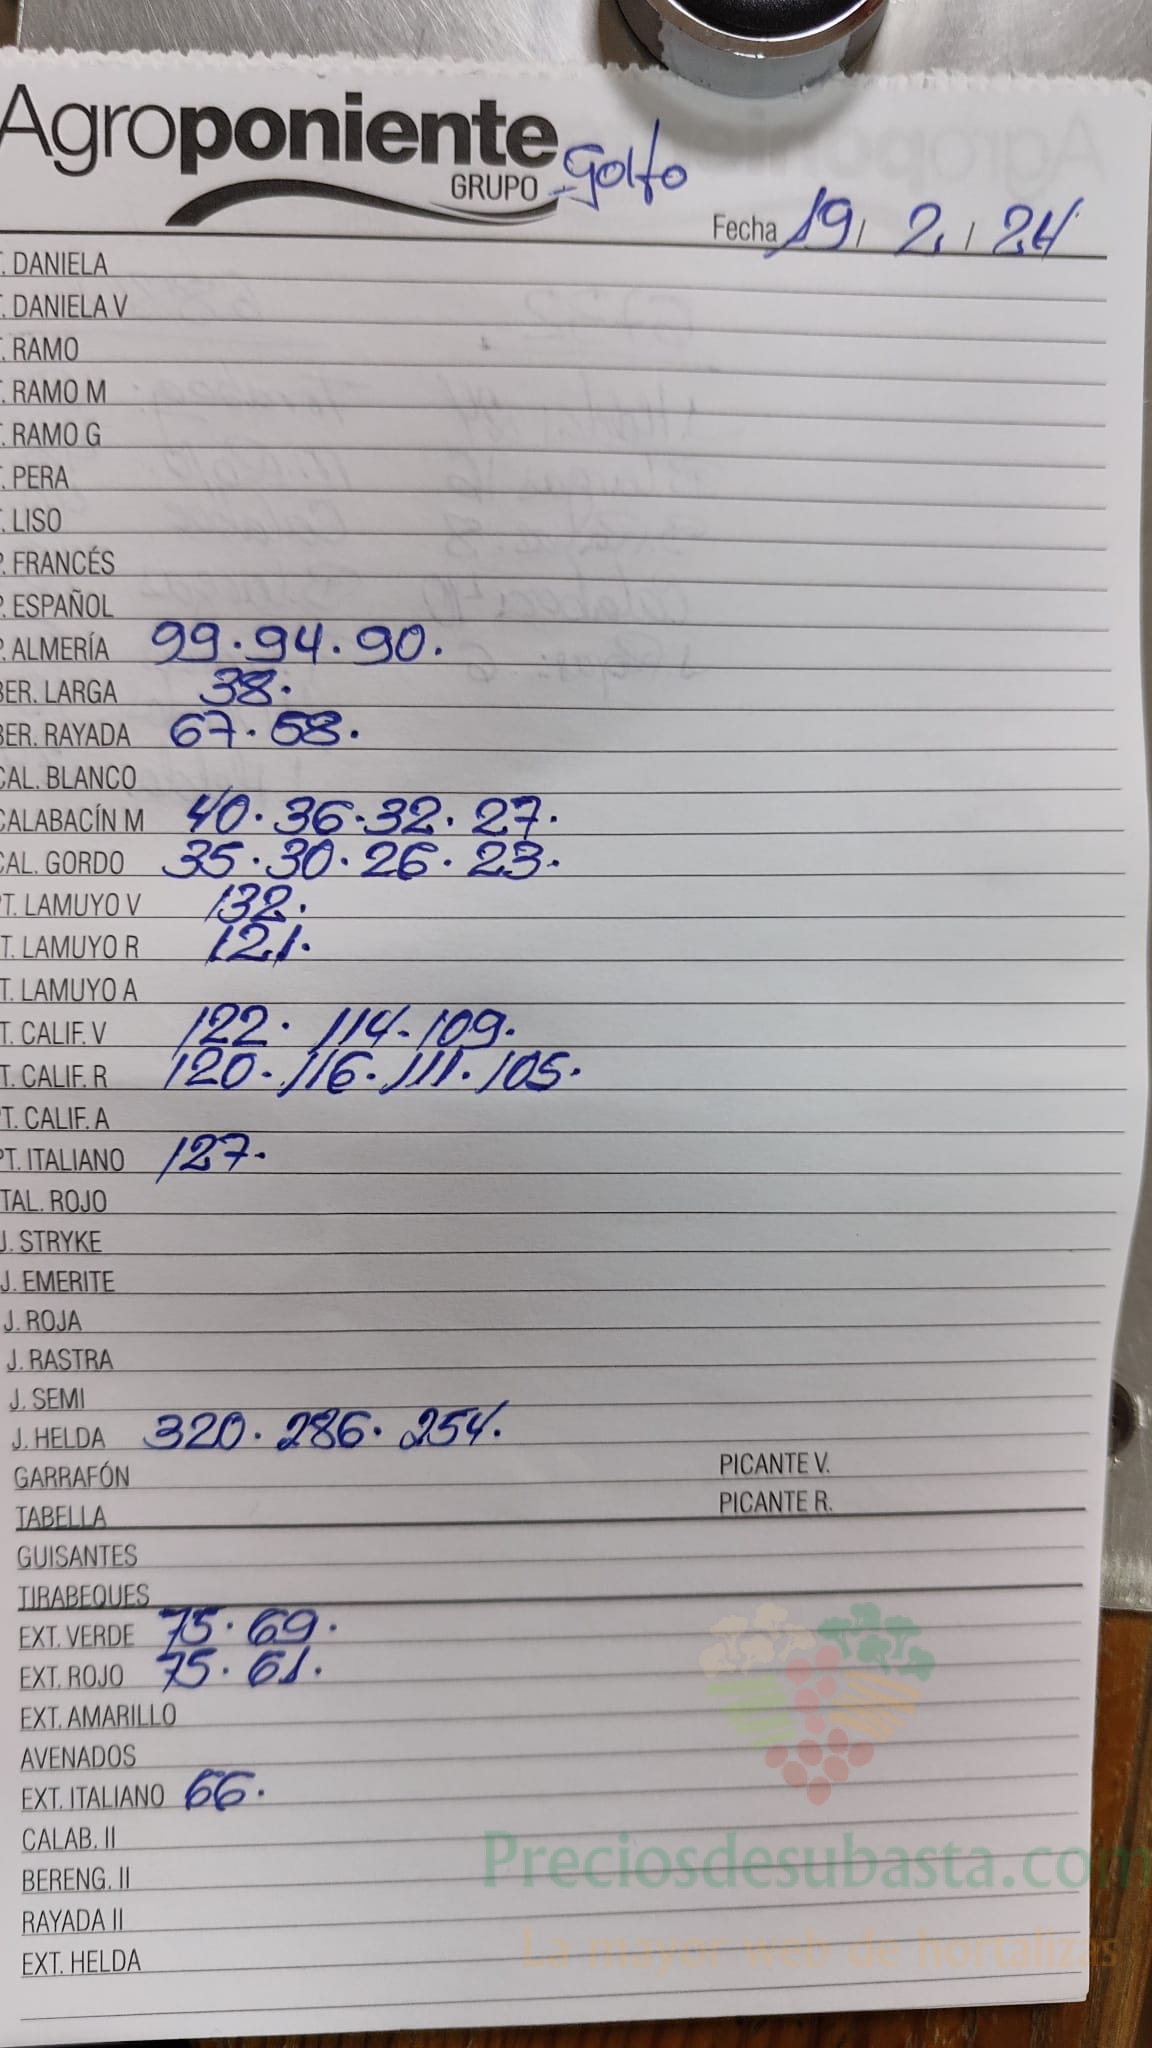 Agroponiente
GRUPO - Golfo
Fecha 19 / 2 / 24
T. DANIELA
T. DANIELA V
T. RAMO
T. RAMO M
T. RAMO G
T. PERA
T. LISO
P. FRANCÉS
P. ESPAÑOL
P. ALMERÍA 99. 94. 90.
BER. LARGA 38.
BER. RAYADA 67. 58.
CAL. BLANCO
CALABACÍN M 40. 36. 32. 27.
CAL. GORDO 35. 30. 26. 23.
PT. LAMUYO V 132.
T. LAMUYO R 121.
T. LAMUYO A
T. CALIF. V 122. 114. 109.
T. CALIF. R 120. 116. 111. 105.
PT. CALIF. A
PT. ITALIANO 127.
TAL. ROJO
J. STRYKE
J. EMERITE
J. ROJA
J. RASTRA
J. SEMI
J. HELDA 320. 286. 254.
GARRAFÓN PICANTE V.
TABELLA PICANTE R.
GUISANTES
TIRABEQUES
EXT. VERDE 75. 69.
EXT. ROJO 75. 61.
EXT. AMARILLO
AVENADOS
EXT. ITALIANO 66.
CALAB. II
BERENG. II
RAYADA II
EXT. HELDA
Preciosdesubasta.com
La mayor web de hortalizas